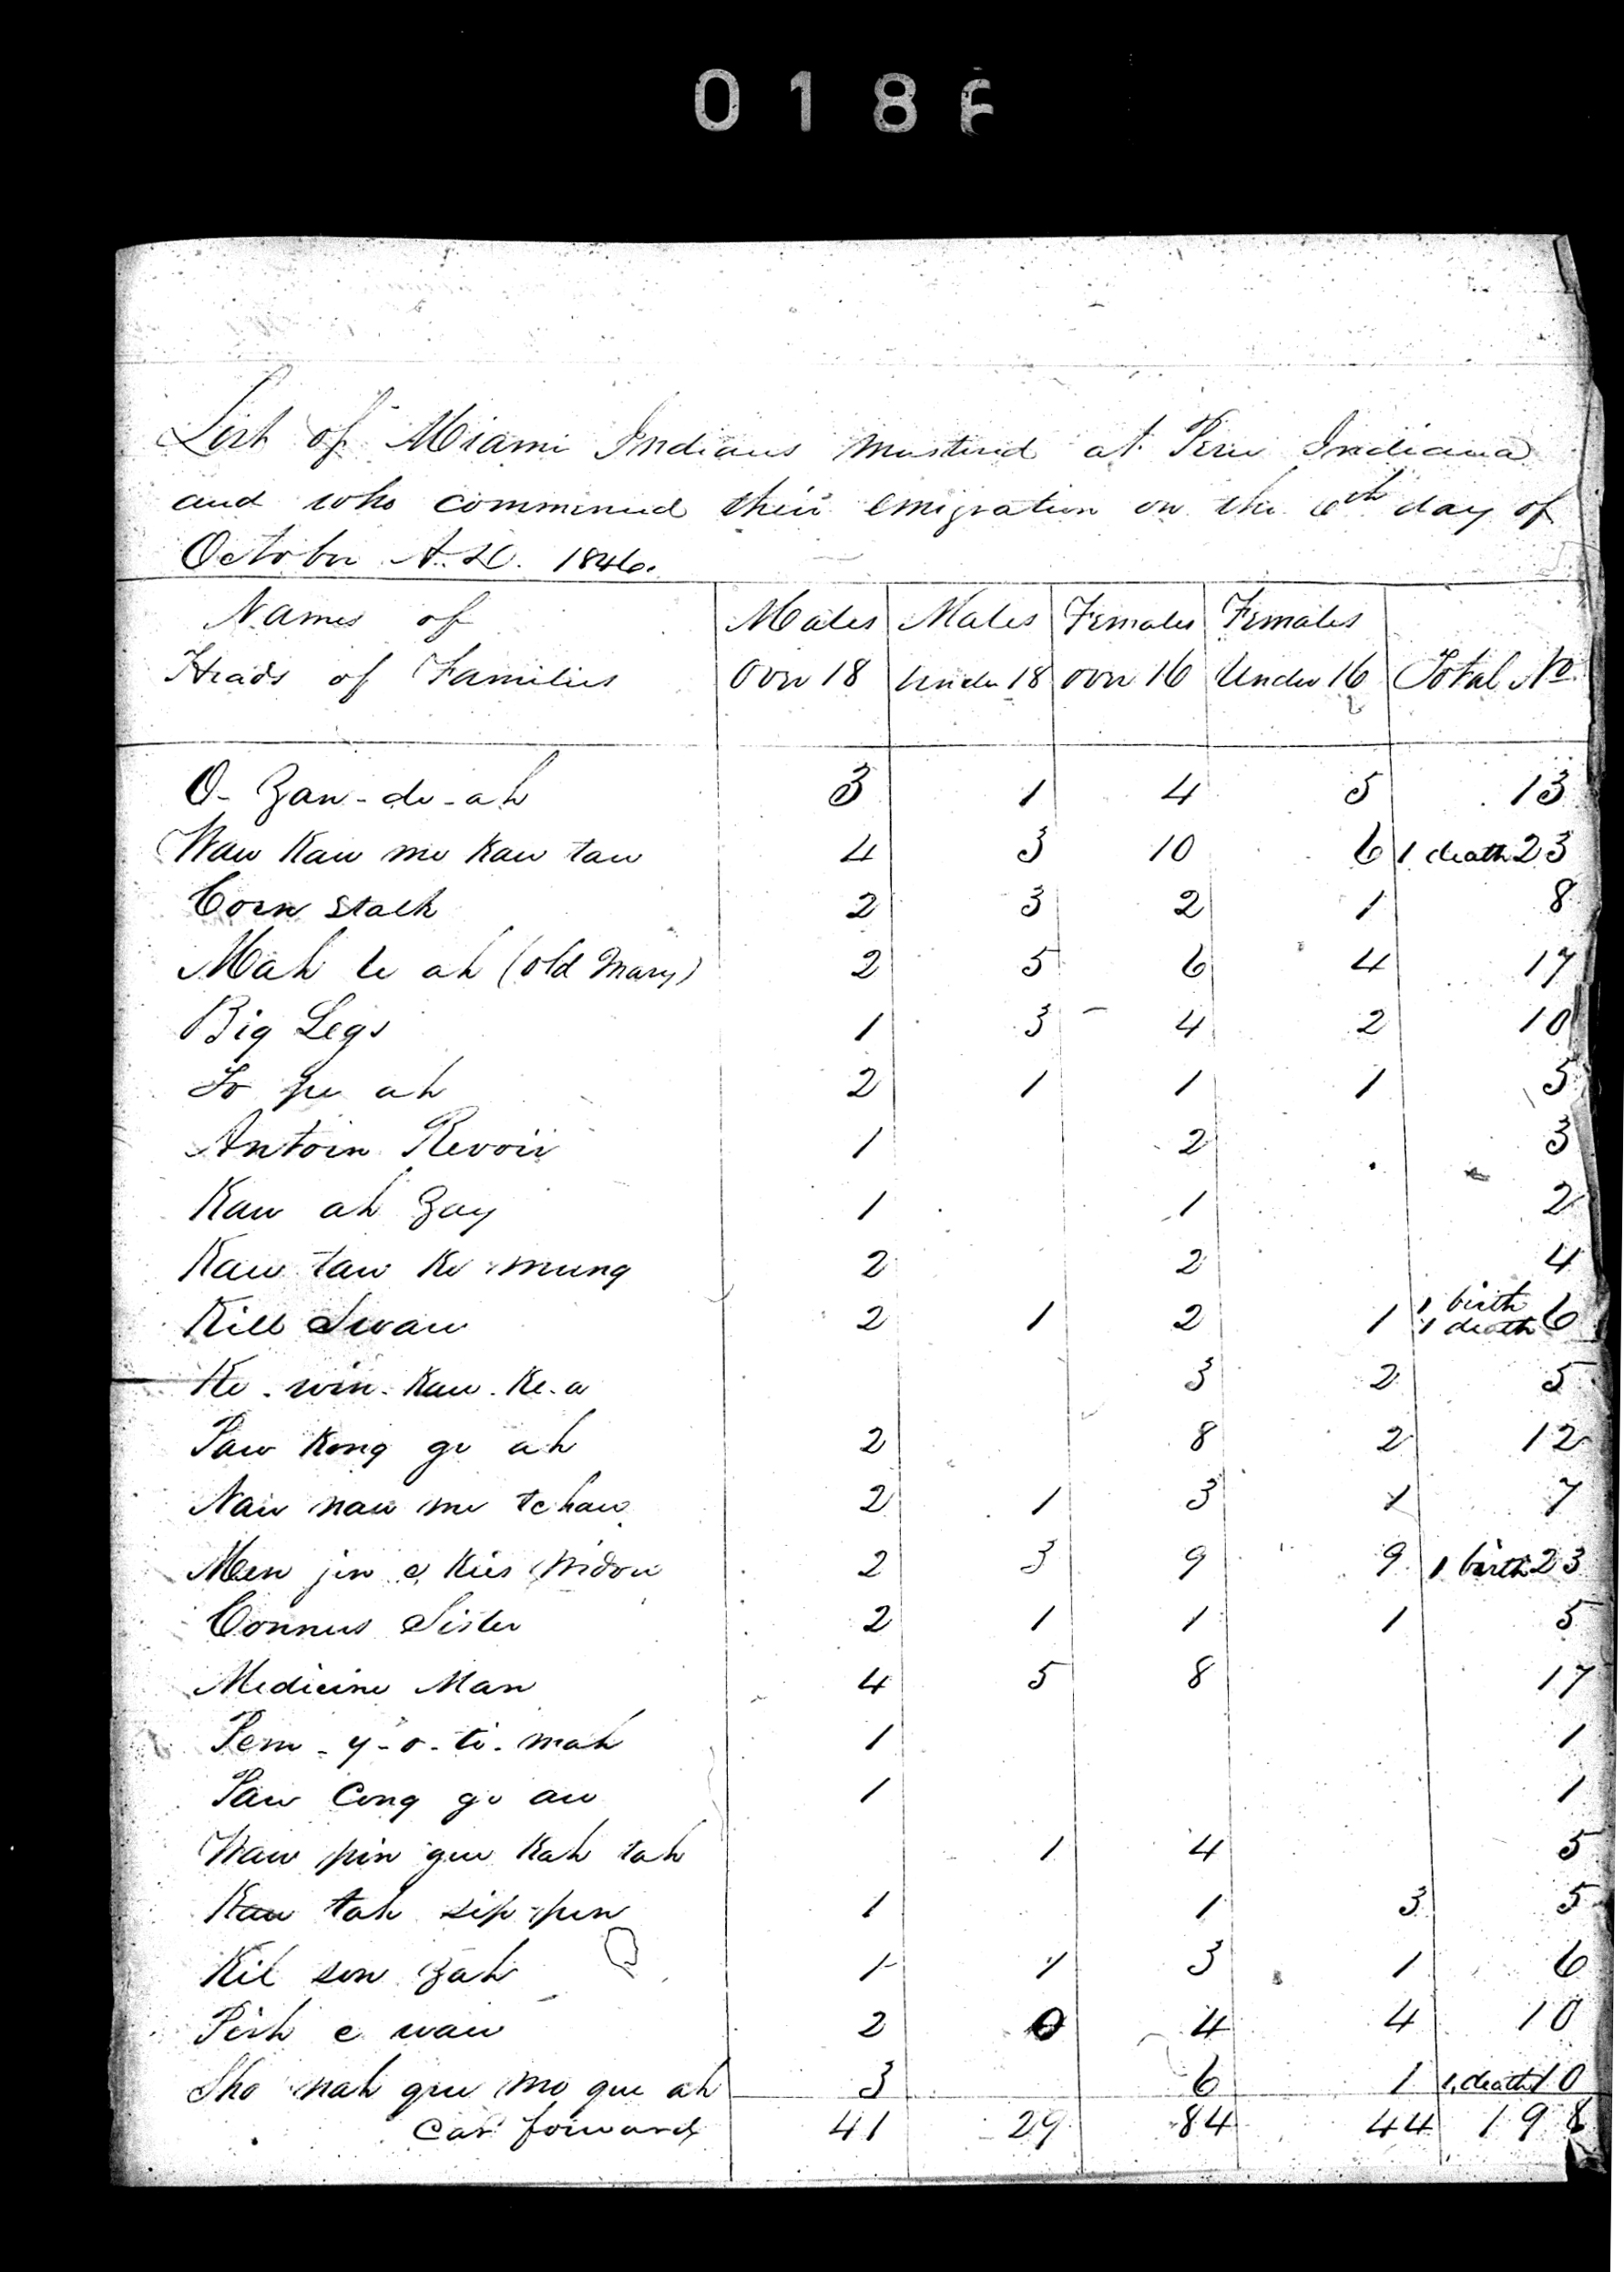 0186
List of Miami Indians mustered at Peru Indiana
and who commenced their emigration on the 6th day of
October A.D. 1846.
Names of Heads of Families | Males Over 18 | Males Under 18 | Females over 16 | Females Under 16 | Total No.
O- Zan-de-ah 3 1 4 5 13
Waw Kaw me Kaw taw 4 3 10 6 1 death 23
Corn stalk 2 3 2 1 8
Mah le ah (old Mary) 2 5 6 4 17
Big Legs 1 3 4 2 10
To pe ah 2 1 1 1 5
Antoin Revoir 1 2 3
Kaw ah Zay 1 1 2
Kaw taw Ke mung 2 2 4
Kill Swaw 2 1 2 1 1 birth 1 death 6
Ke-win-Kaw-Ke-a 3 2 5
Paw Kong ge ah 2 8 2 12
Naw naw me tchaw 2 1 3 1 7
Men jin e Kies Widow 2 3 9 9 1 birth 23
Conners Sister 2 1 1 1 5
Medicine Man 4 5 8 17
Pem-y-o-te-mah 1 1
Paw Cong ge aw 1 1
Waw pin gue Kah tah 1 4 5
Kaw tah sip pen 1 1 3 5
Kil son Zah 1 1 3 1 6
Pish e waw 2 0 4 4 10
Sho nah que mo que ah 3 6 1 1 death 10
Car forward 41 29 84 44 198